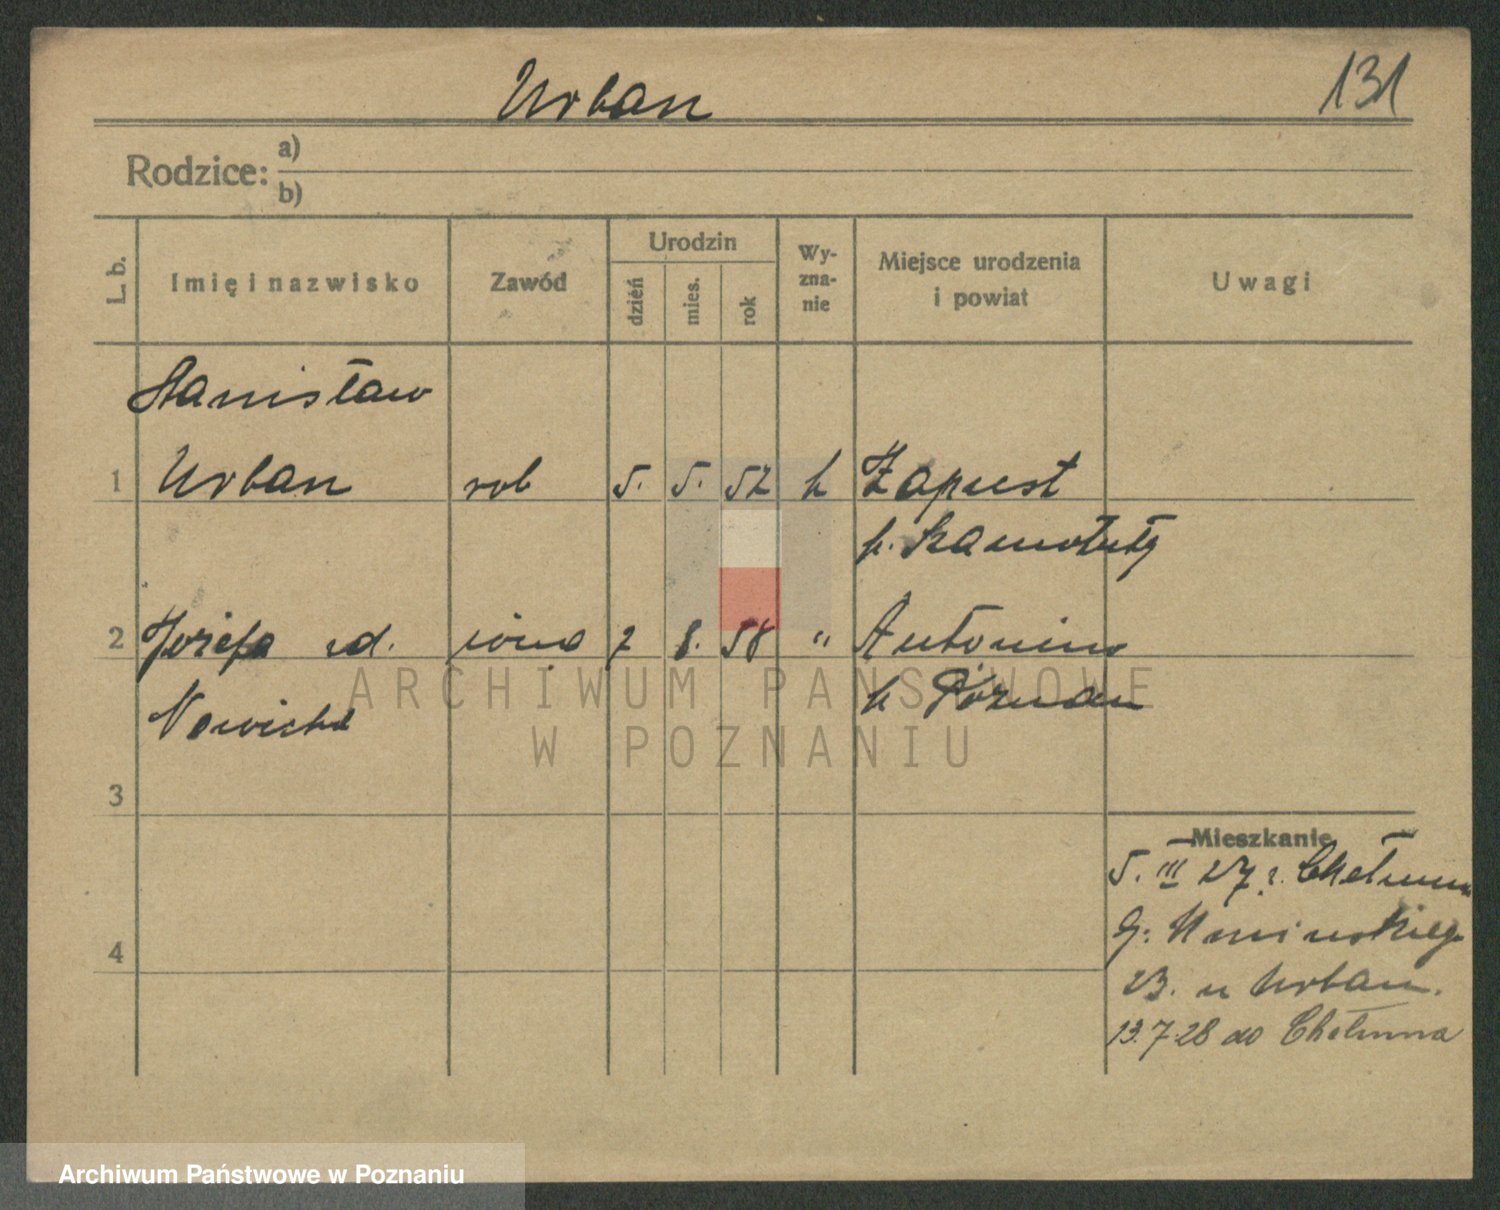 Urban
131
Rodzice: a)
b)
L. b. Imię i nazwisko Zawód Urodzin Wy- Miejsce urodzenia Uwagi
dzień mies. rok zna- i powiat
nie
Stanisław
1 Urban rob 5. 5. 52 k Zapust
p. Szamotuły
2 Józefa zd. żona 7 8. 58 " Antonin
p Poznań
Nowicka
3
Mieszkanie
5. III 27 r. Chełmna
G: Umińskiego
23. u Urban.
13.7.28 do Chełmna
4
ARCHIWUM PAŃSTWOWE
W POZNANIU
Archiwum Państwowe w Poznaniu